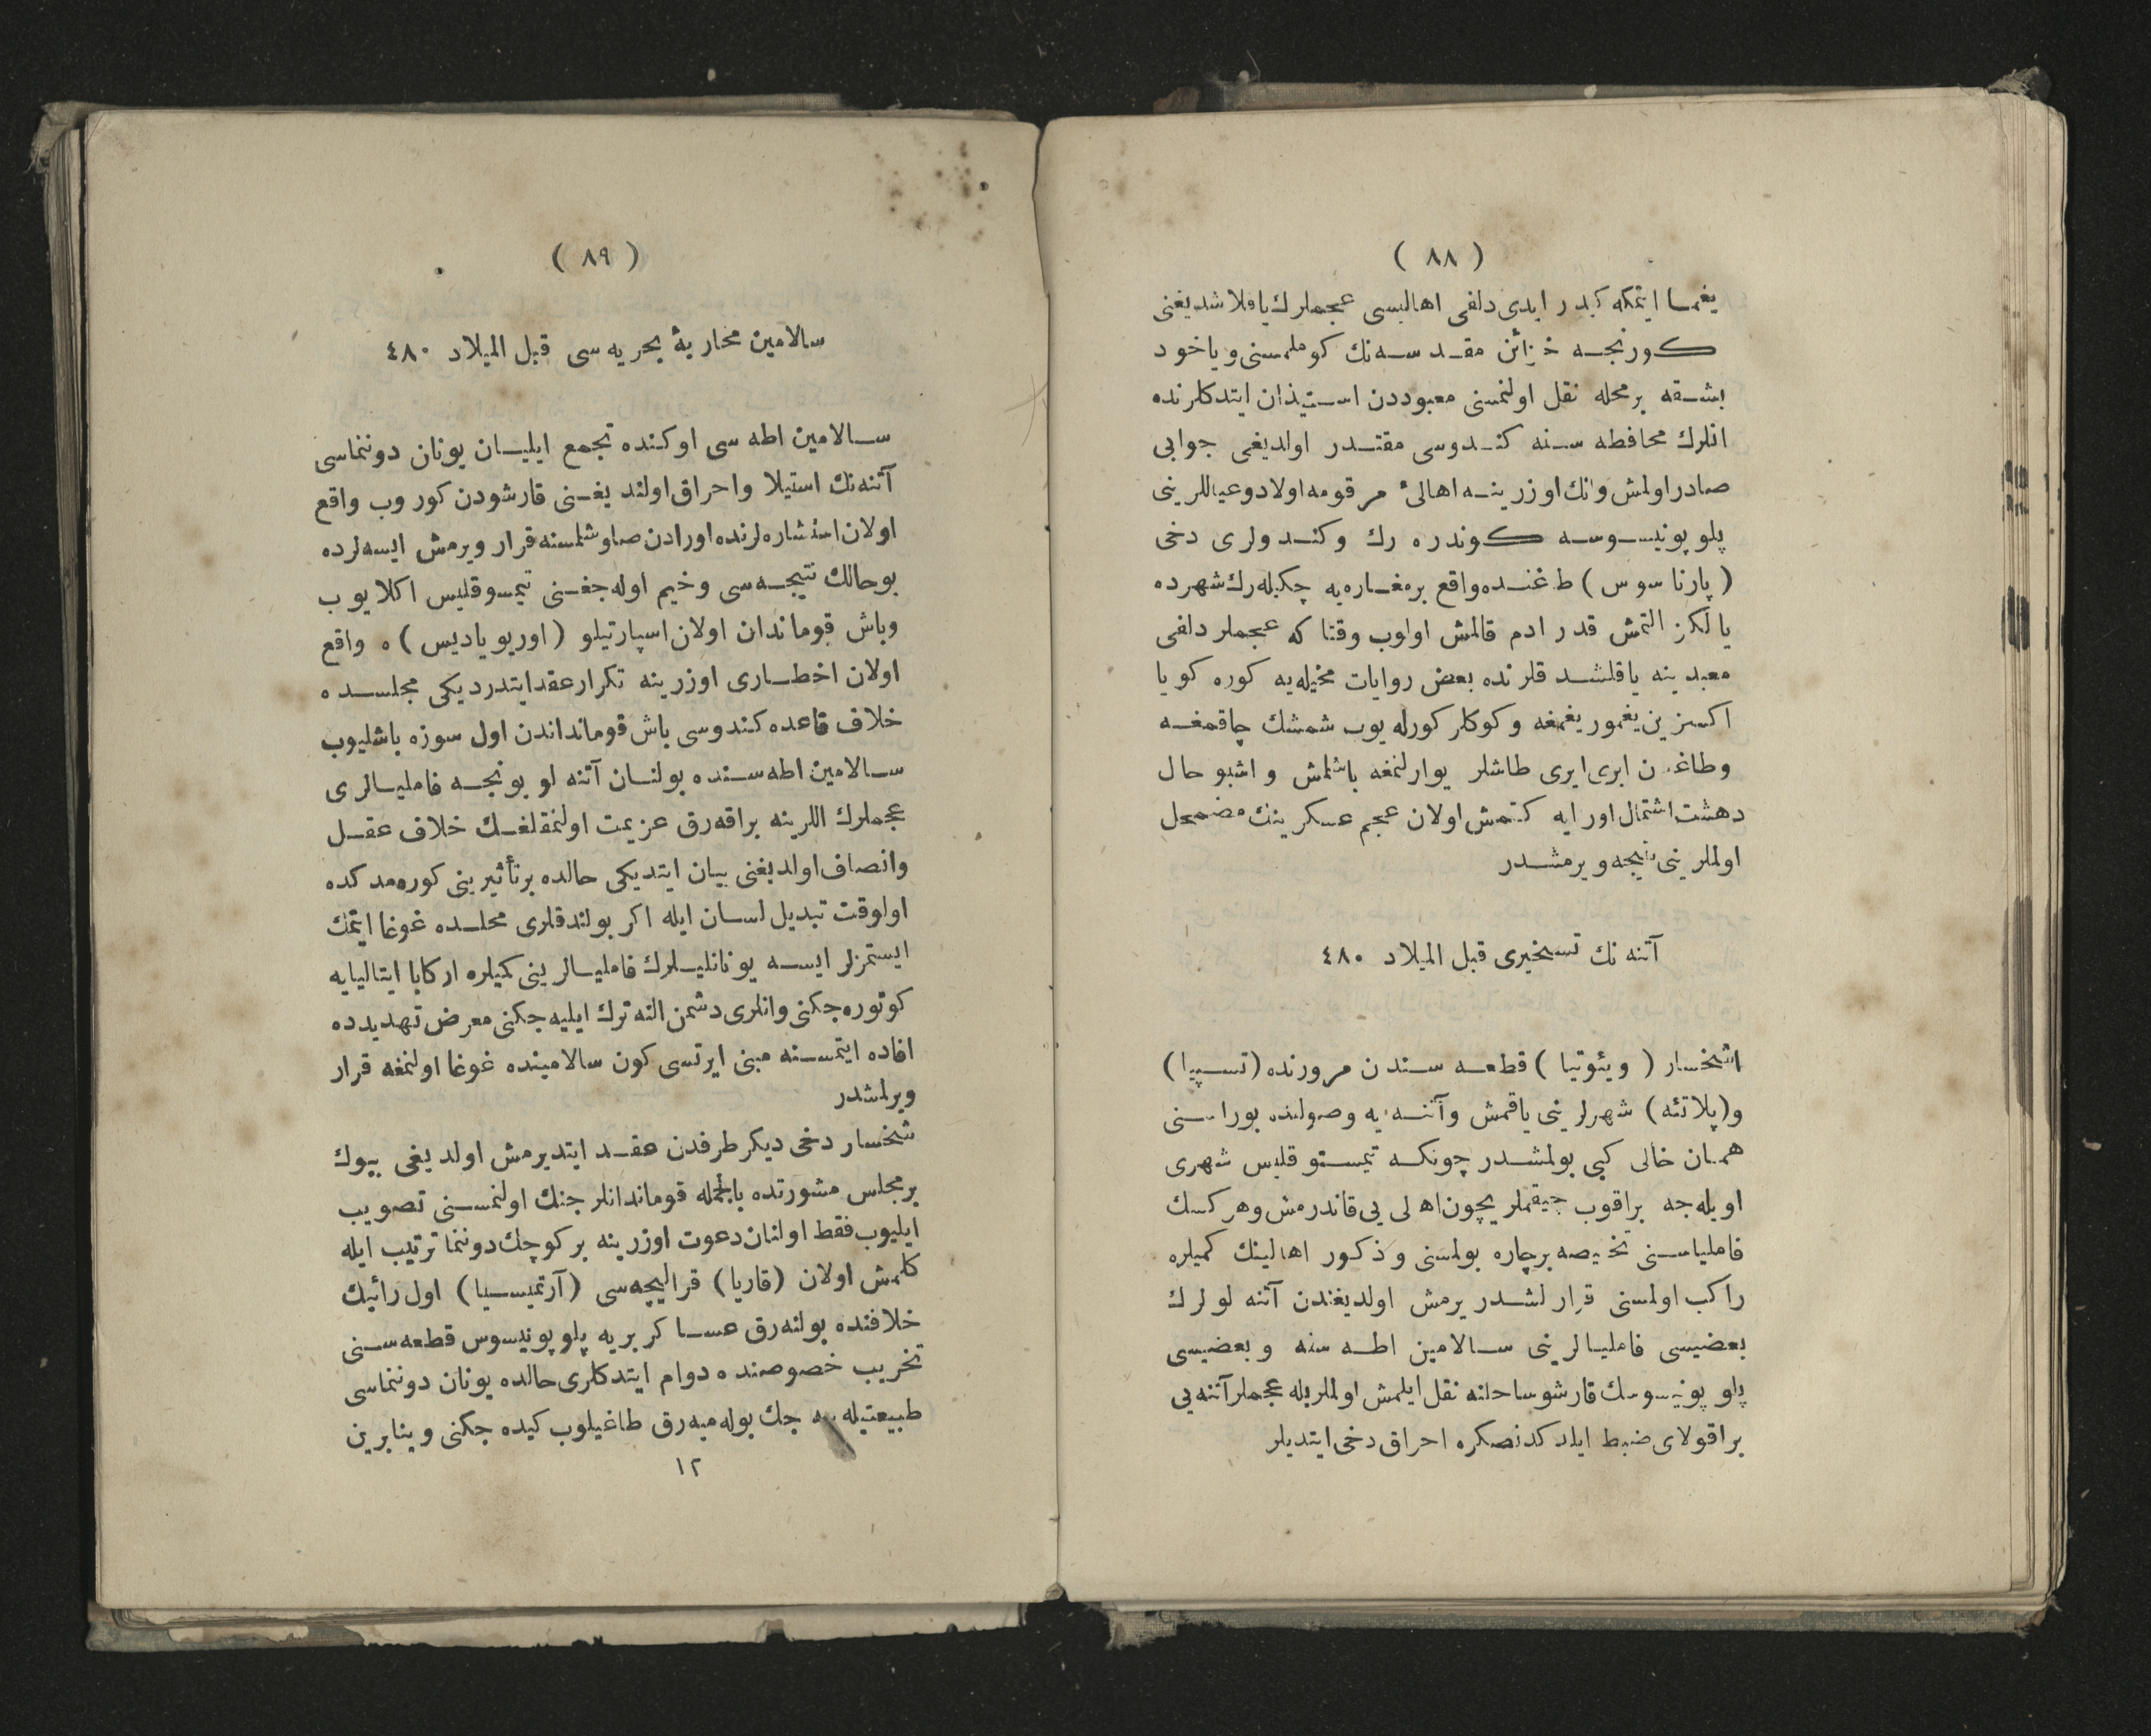 ( ٨٨ )
يغما ايتمكه كيدر ايدى دلفى اهاليسى عجملرك ياقلاشديغنى
كورنجه خزائن مقدسه نك كوملمسنى وياخود
بشقه برمحله نقل اولنمسنى معبوددن استيذان ايتدكلرنده
انلرك محافظه سنه كندوسى مقتدر اولديغى جوابى
صادر اولمش وانك اوزرينه اهالئ مرقومه اولاد وعياللرينى
پلوپونيسوسه كوندره رك وكندولرى دخى
( پارناسوس ) طاغنده واقع برمغاره يه چكيله رك شهرده
يالكز التمش قدر ادم قالمش اولوب وقتا كه عجملر دلفى
معبدينه ياقلشدقلرنده بعض روايات مخيله يه كوره كويا
اكسزين يغمور يغمغه وكوكلر كورله يوب شمشك چاقمغه
وطاغدن ايرى ايرى طاشلر يوارلنمغه باشلمش و اشبو حال
دهشت اشتمال اورايه كتمش اولان عجم عسكرينك مضمحل
اولملرينى نتيجه ويرمشدر
آتنه نك تسخيرى قبل الميلاد ٤٨٠
اشخسار ( ويئوتيا ) قطعه سندن مرورنده ( تسپيا )
و( پلاتئه ) شهرلرينى ياقمش وآتنه يه وصولنده بوراسنى
همان خالى كبى بولمشدر چونكه تيمستوقليس شهرى
اويله جه براقوب چيقملريچون اهالى يى قاندرمش وهركسك
فاملياسنى تخليصه برچاره بولمسنى وذكور اهالينك كميلره
راكب اولمسنى قرارلشديرمش اولديغندن آتنه لولرك
بعضيسى فامليالرينى سالامين اطه سنه وبعضيسى
پلوپونيسوسك قارشو ساحلنه نقل ايلمش اولملريله عجملر آتنه يى
براقولاى ضبط ايلدكدنصكره احراق دخى ايتديلر
( ٨٩ )
سالامين محاربهٔ بحريه سى قبل الميلاد ٤٨٠
سالامين اطه سى اوكنده تجمع ايليان يونان دوننماسى
آتنه نك استيلا واحراق اولنديغنى قارشودن كوروب واقع
اولان استشاره لرنده اورادن صاوشلمسنه قرار ويرمش ايسه لرده
بوحالك نتيجه سى وخيم اوله جغنى تيمسوقليس اكلايوب
وباش قوماندان اولان اسپارتيلو ( اوريوياديس ) ه واقع
اولان اخطارى اوزرينه تكرار عقد ايتدرديكى مجلسده
خلاف قاعده كندوسى باش قوماندانن اول سوزه باشليوب
سالامين اطه سنده بولنان آتنه لو بونجه فامليالرى
عجملرك اللرينه براقه رق عزيمت اولنمقلغك خلاف عقل
وانصاف اولديغنى بيان ايتديكى حالده برتأثيرينى كوره مدكده
اولوقت تبديل لسان ايله اكر بولندقلرى محلده غوغا ايتمك
ايستمزلر ايسه يونانليلرك فامليالرينى كميلره اركابا ايتاليايه
كوتوره جكنى وانلرى دشمن النه ترك ايليه جكنى معرض تهديدده
افاده ايتمسنه مبنى ايرتسى كون سالامينده غوغا اولنمغه قرار
ويرلمشدر
شخسار دخى ديكر طرفدن عقد ايتديرمش اولديغى بيوك
برمجلس مشورتده بالجمله قوماندانلر جنك اولنمسنى تصويب
ايليوب فقط اولنان دعوت اوزرينه بركوچك دوننما ترتيب ايله
كلمش اولان ( قاريا ) قراليچه سى ( آرتميسيا ) اول رائيك
خلافنده بولنه رق عساكر بريه پلوپونيسوس قطعه سنى
تخريب خصوصنده دوام ايتدكلرى حالده يونان دوننماسى
طبيعتيله ييه جك بوله ميه رق طاغيلوب كيده جكنى وبنابرين
١٢